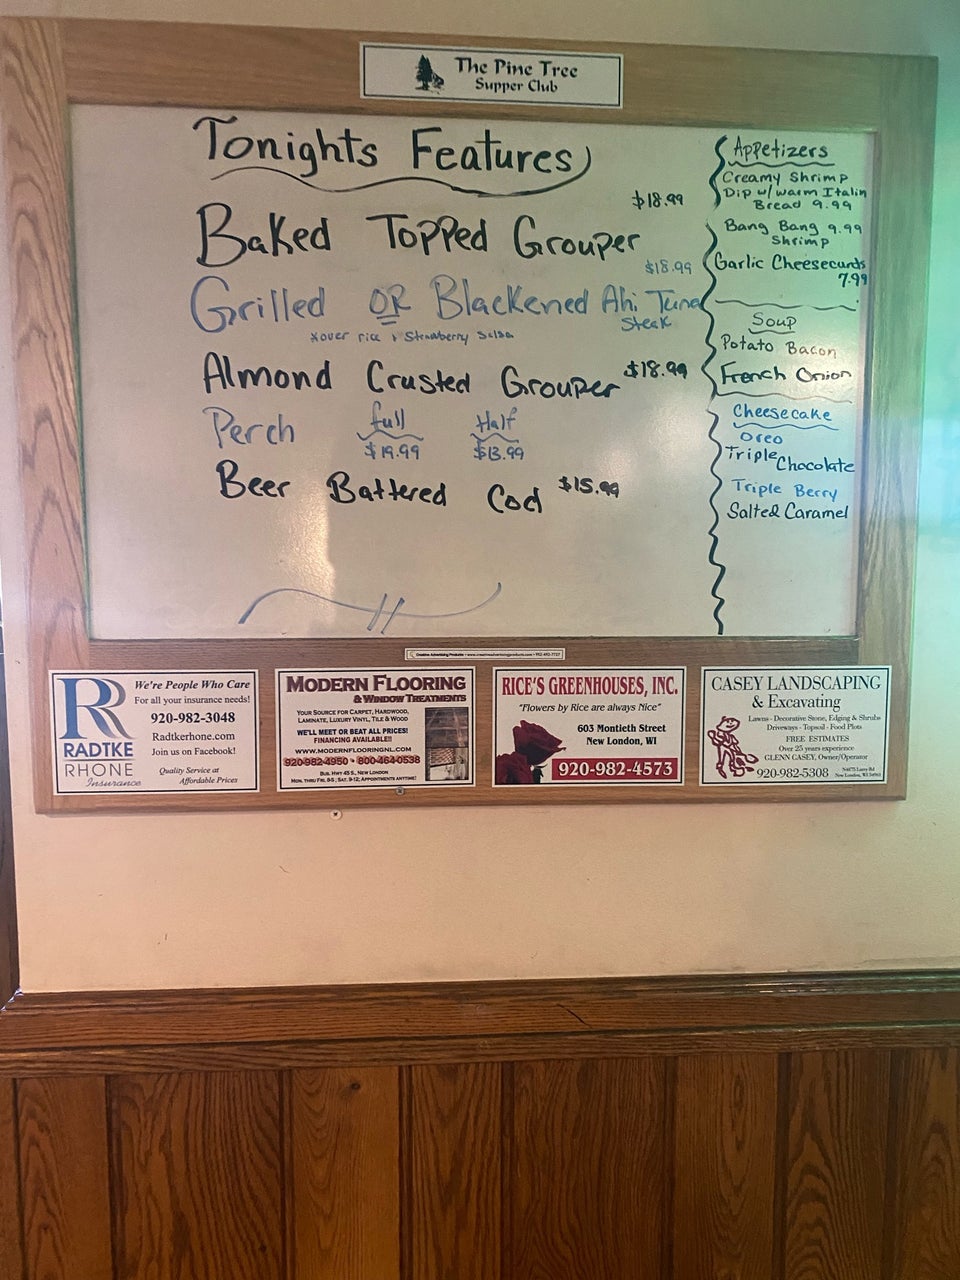 The Pine Tree
Supper Club
Tonights Features
$18.99
Baked Topped Grouper
$18.99
Grilled OR Blackened Ahi Tuna
Steak
*over rice & Strawberry Salsa
Almond Crusted Grouper $18.99
Perch full Half
$19.99 $13.99
Beer Battered Cod $15.99
Appetizers
Creamy Shrimp
Dip w/warm Italin
Bread 9.99
Bang Bang 9.99
Shrimp
Garlic Cheesecurds
7.99
Soup
Potato Bacon
French Onion
Cheesecake
Oreo
Triple
Chocolate
Triple Berry
Salted Caramel
Creative Advertising Products • www.creativeadvertisingproducts.com •
RR
RADTKE
RHONE
Insurance
We're People Who Care
For all your insurance needs!
920-982-3048
Radtkerhone.com
Join us on Facebook!
Quality Service at
Affordable Prices
MODERN FLOORING
& WINDOW TREATMENTS
YOUR SOURCE FOR CARPET, HARDWOOD,
LAMINATE, LUXURY VINYL, TILE & WOOD
WE'LL MEET OR BEAT ALL PRICES!
FINANCING AVAILABLE!!
WWW.MODERNFLOORINGNL.COM
920-982-4950 • 800-464-0538
BUS. HWY 45 S., NEW LONDON
MON. THRU FRI. 8-5; SAT. 9-12; APPOINTMENTS ANYTIME!
RICE'S GREENHOUSES, INC.
"Flowers by Rice are always Nice"
603 Montieth Street
New London, WI
920-982-4573
CASEY LANDSCAPING
& Excavating
Lawns - Decorative Stone, Edging & Shrubs
Driveways - Topsoil - Food Plots
FREE ESTIMATES
Over 25 years experience
GLENN CASEY, Owner/Operator
920-982-5308
New London, WI 54961